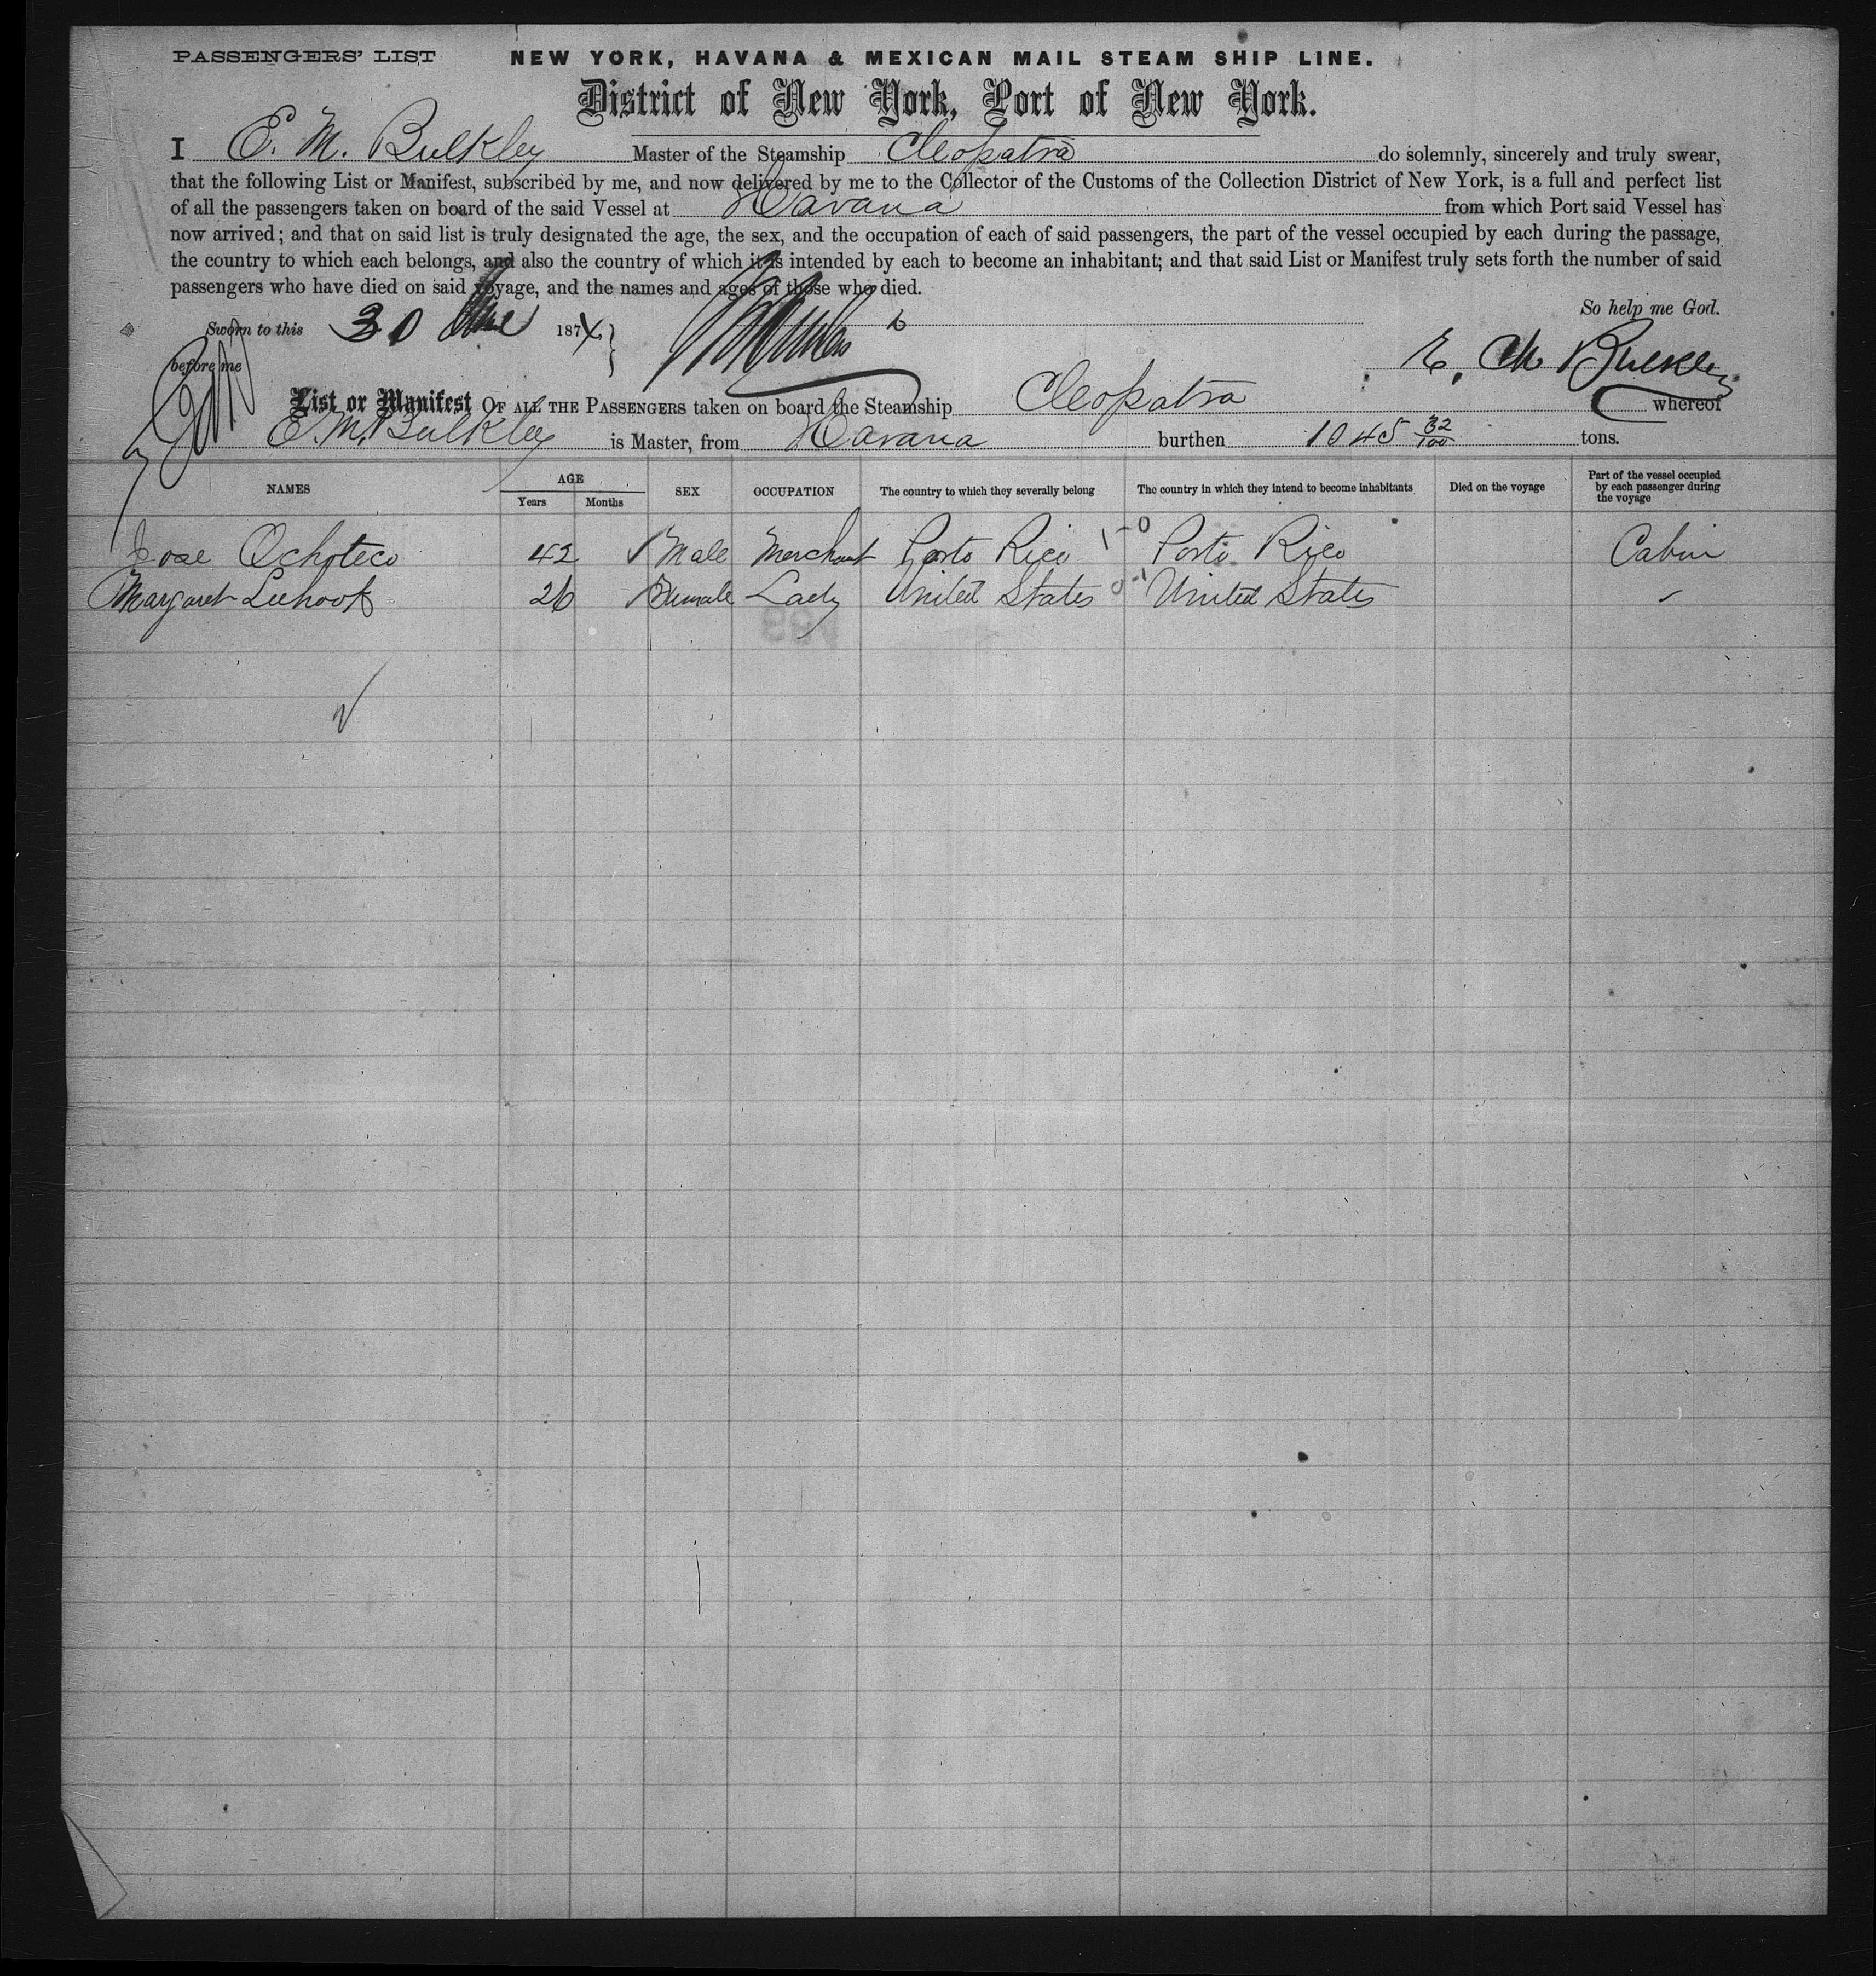 PASSENGERS' LIST NEW YORK, HAVANA & MEXICAN MAIL STEAM SHIP LINE.
District of New York, Port of New York.
I E. M. Bulkley Master of the Steamship Cleopatra do solemnly, sincerely and truly swear,
that the following List or Manifest, subscribed by me, and now delivered by me to the Collector of the Customs of the Collection District of New York, is a full and perfect list
of all the passengers taken on board of the said Vessel at Havana from which Port said Vessel has
now arrived; and that on said list is truly designated the age, the sex, and the occupation of each of said passengers, the part of the vessel occupied by each during the passage,
the country to which each belongs, and also the country of which it is intended by each to become an inhabitant; and that said List or Manifest truly sets forth the number of said
passengers who have died on said voyage, and the names and ages of those who died.
So help me God.
Sworn to this 30 June 1874
before me E. M. Bulkley
List or Manifest OF ALL THE PASSENGERS taken on board the Steamship Cleopatra whereof
E. M. Bulkley is Master, from Havana burthen 1045 32/100 tons.
NAMES AGE Years Months SEX OCCUPATION The country to which they severally belong The country in which they intend to become inhabitants Died on the voyage Part of the vessel occupied by each passenger during the voyage
Jose Ochoteco 42 Male Merchant Porto Rico 1-0 Porto Rico Cabin
Margaret 26 Female Lady United States 0-1 United States